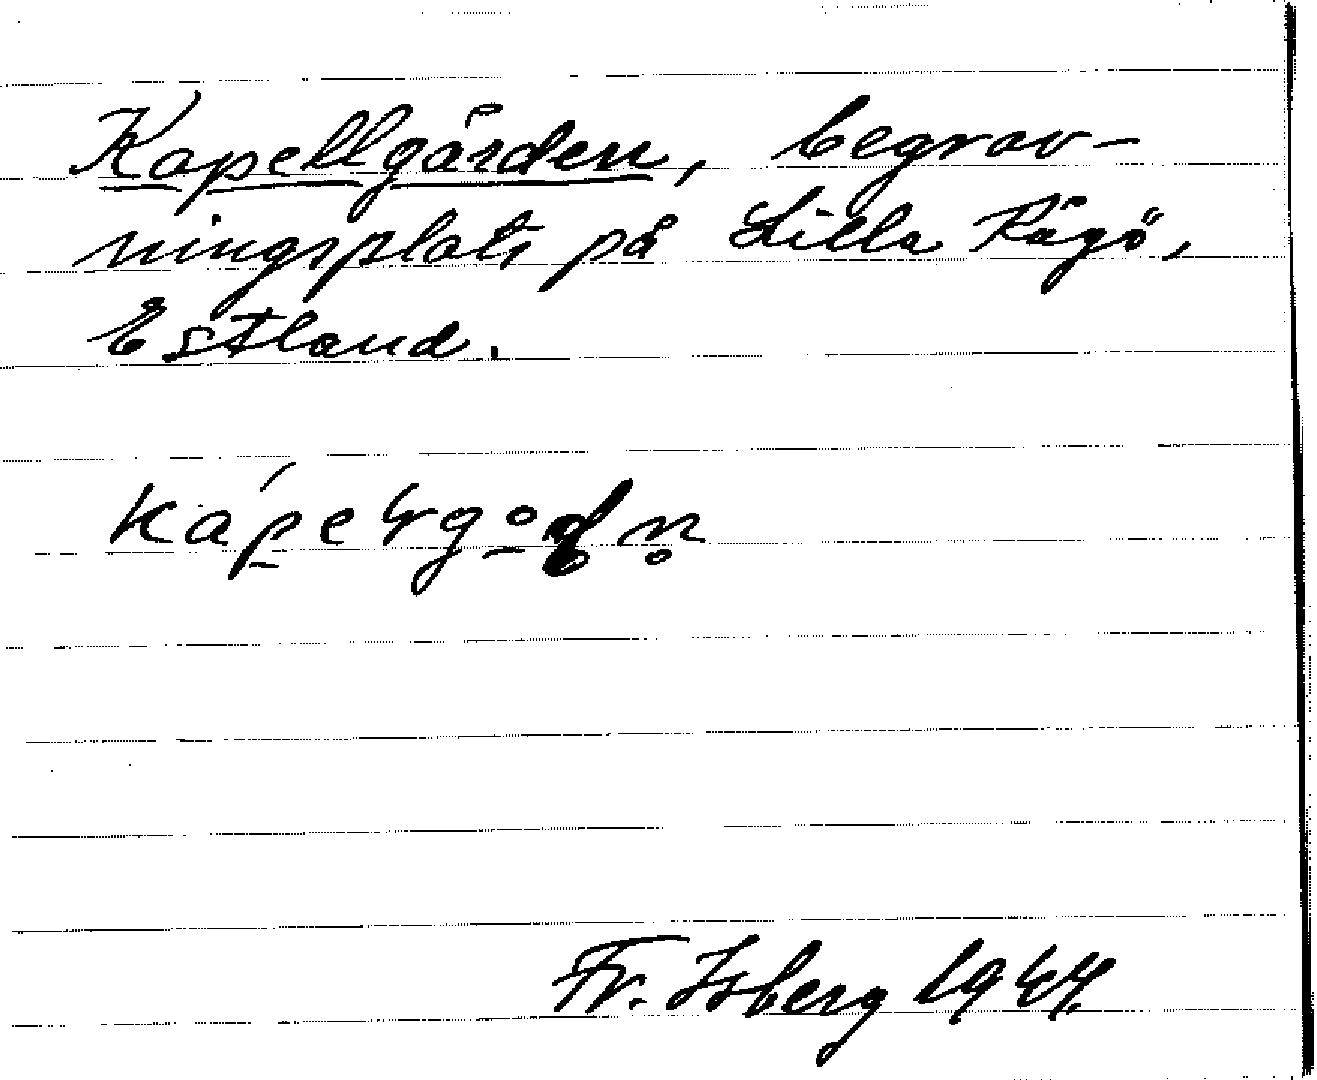 Kapellgården, begrav-
ningsplats på Lilla Rågö,
Estland.
Fr. Isberg 1944.